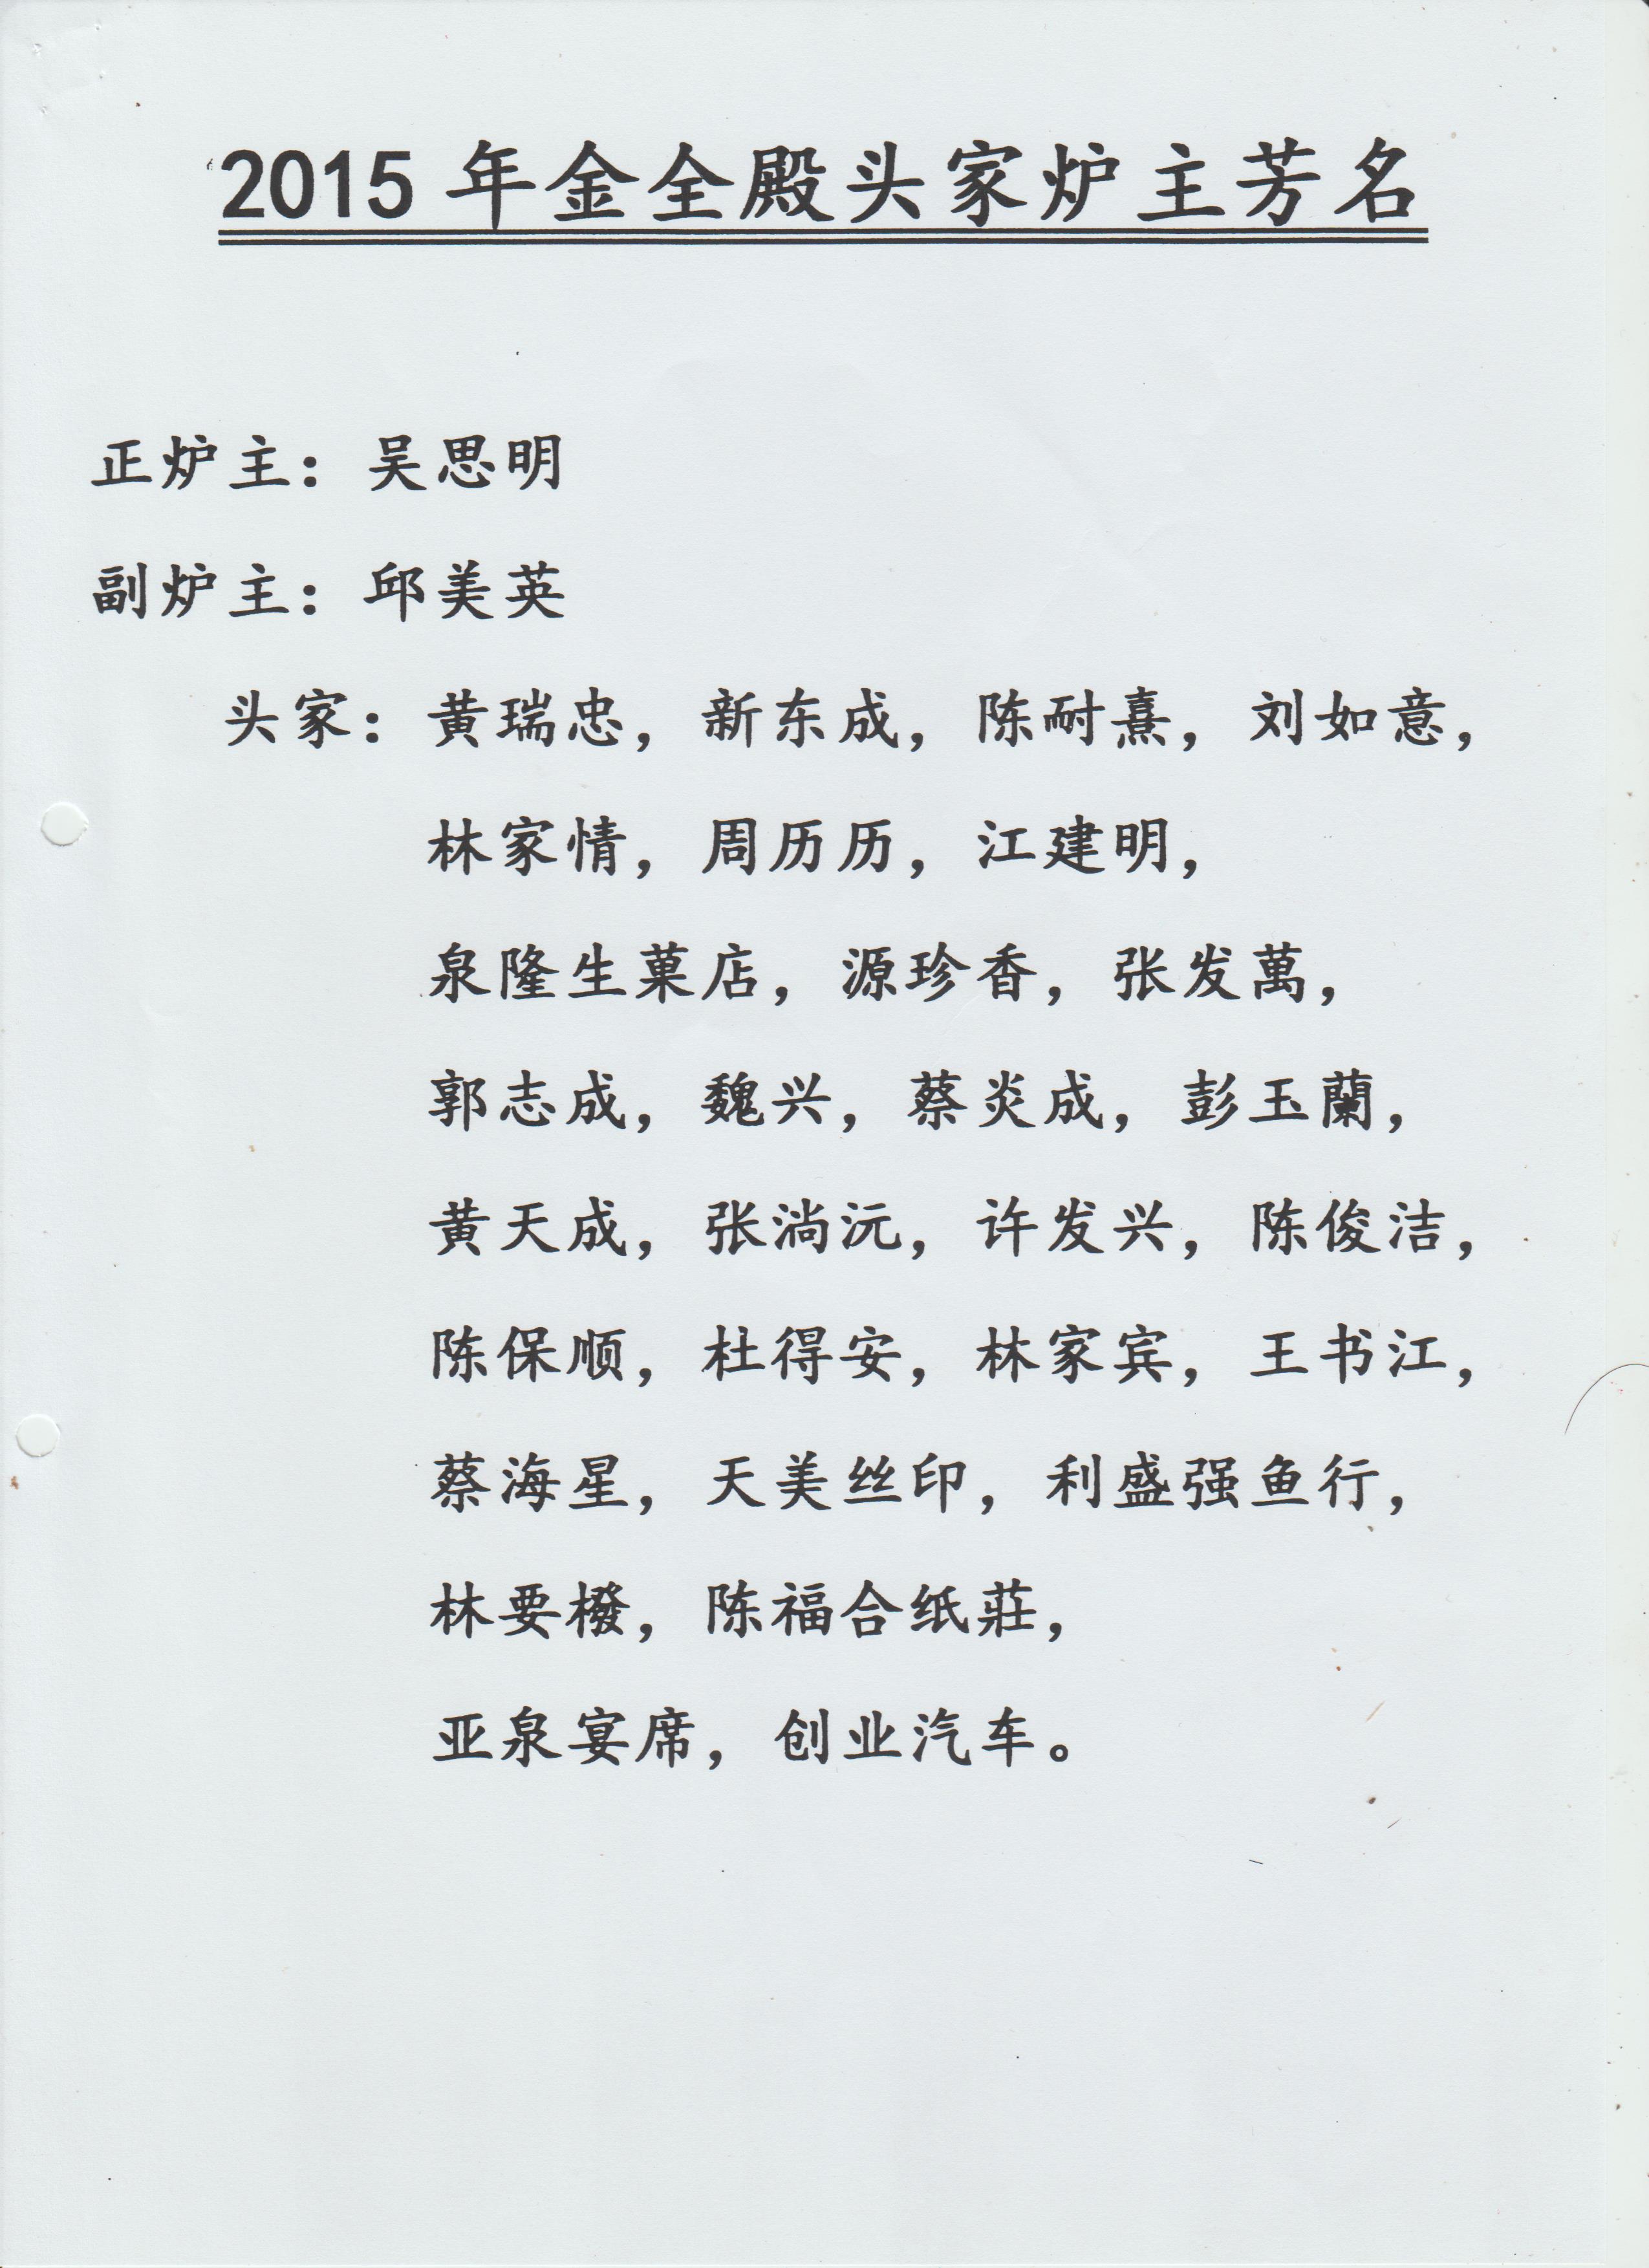 2015年金全殿头家炉主芳名
正炉主：吴思明
副炉主：邱美英
头家：黄瑞忠，新东成，陈耐熹，刘如意，
林家情，周历历，江建明，
泉隆生菓店，源珍香，张发萬，
郭志成，魏兴，蔡炎成，彭玉蘭，
黄天成，张淌沅，许发兴，陈俊洁，
陈保顺，杜得安，林家宾，王书江，
蔡海星，天美丝印，利盛强鱼行，
林要橃，陈福合纸莊，
亚泉宴席，创业汽车。